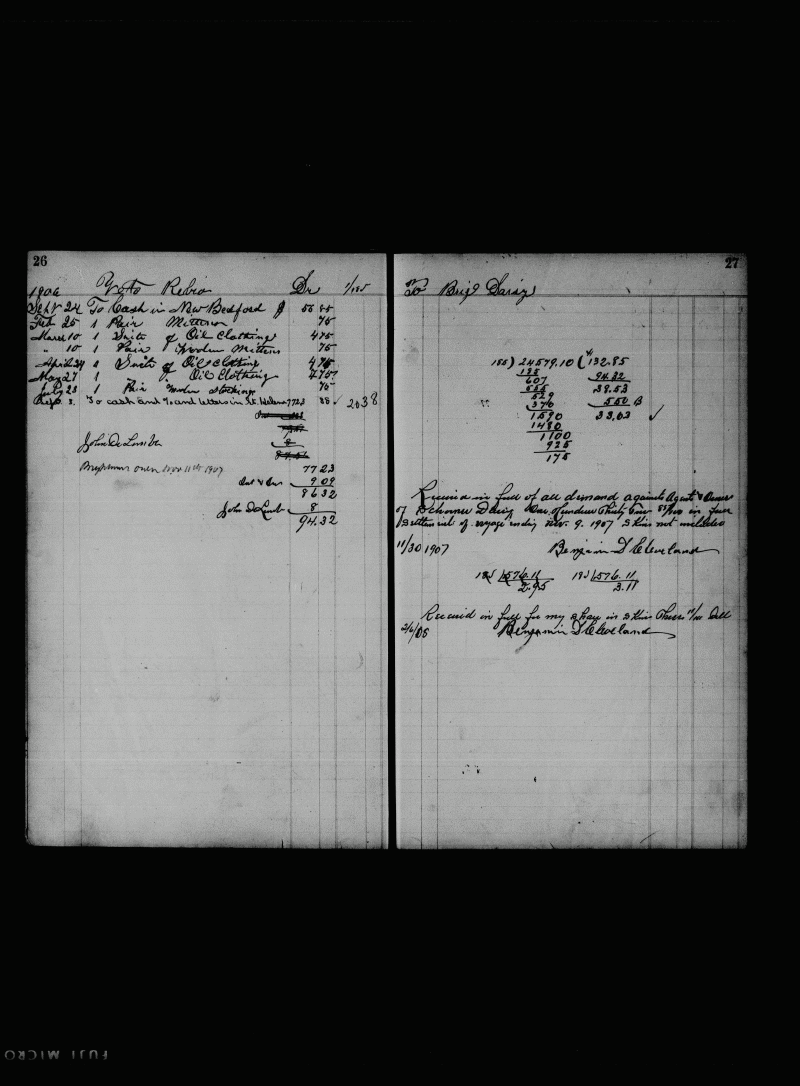 26
1906 Dr 1/185
Sept 24 To Cash in New Bedford 55 85
Feb 25 1 Pair Mittens 75
March 10 1 Suite of Oil Clothing 475
" 10 1 Pair Woolen Mittens 75
April 24 a Suite of Oil Clothing 475
May 27 1 " Oil Clothing 475
July 23 1 Pair Woolen Stockings 75
Sept. 3. To cash and letters in St. Helena 7723 88 ✓ 2038
8
John De
owen Nov 11th 1907 7723
9 09
86 32
John 8
94.32
27
To Benj
185) 24579.10 (132.85
185
607 94.32
555 38.53
529 5 50
370 33.03 ✓
1590
1480
1100
925
175
Received in full of all demand against Agent & Owner
of Schooner Daisy One Hundred Thirty Two 85/100 in full
Settlement of voyage ending Nov. 9. 1907 Skins not included
11/30 1907 Benjamin D Cleveland
195 576.11 185 576.11
2.95 3.11
Received in full for my Share in Skins Three 11/100 Doll
2/6/08 Benjamin D Cleveland
FUJI MICRO